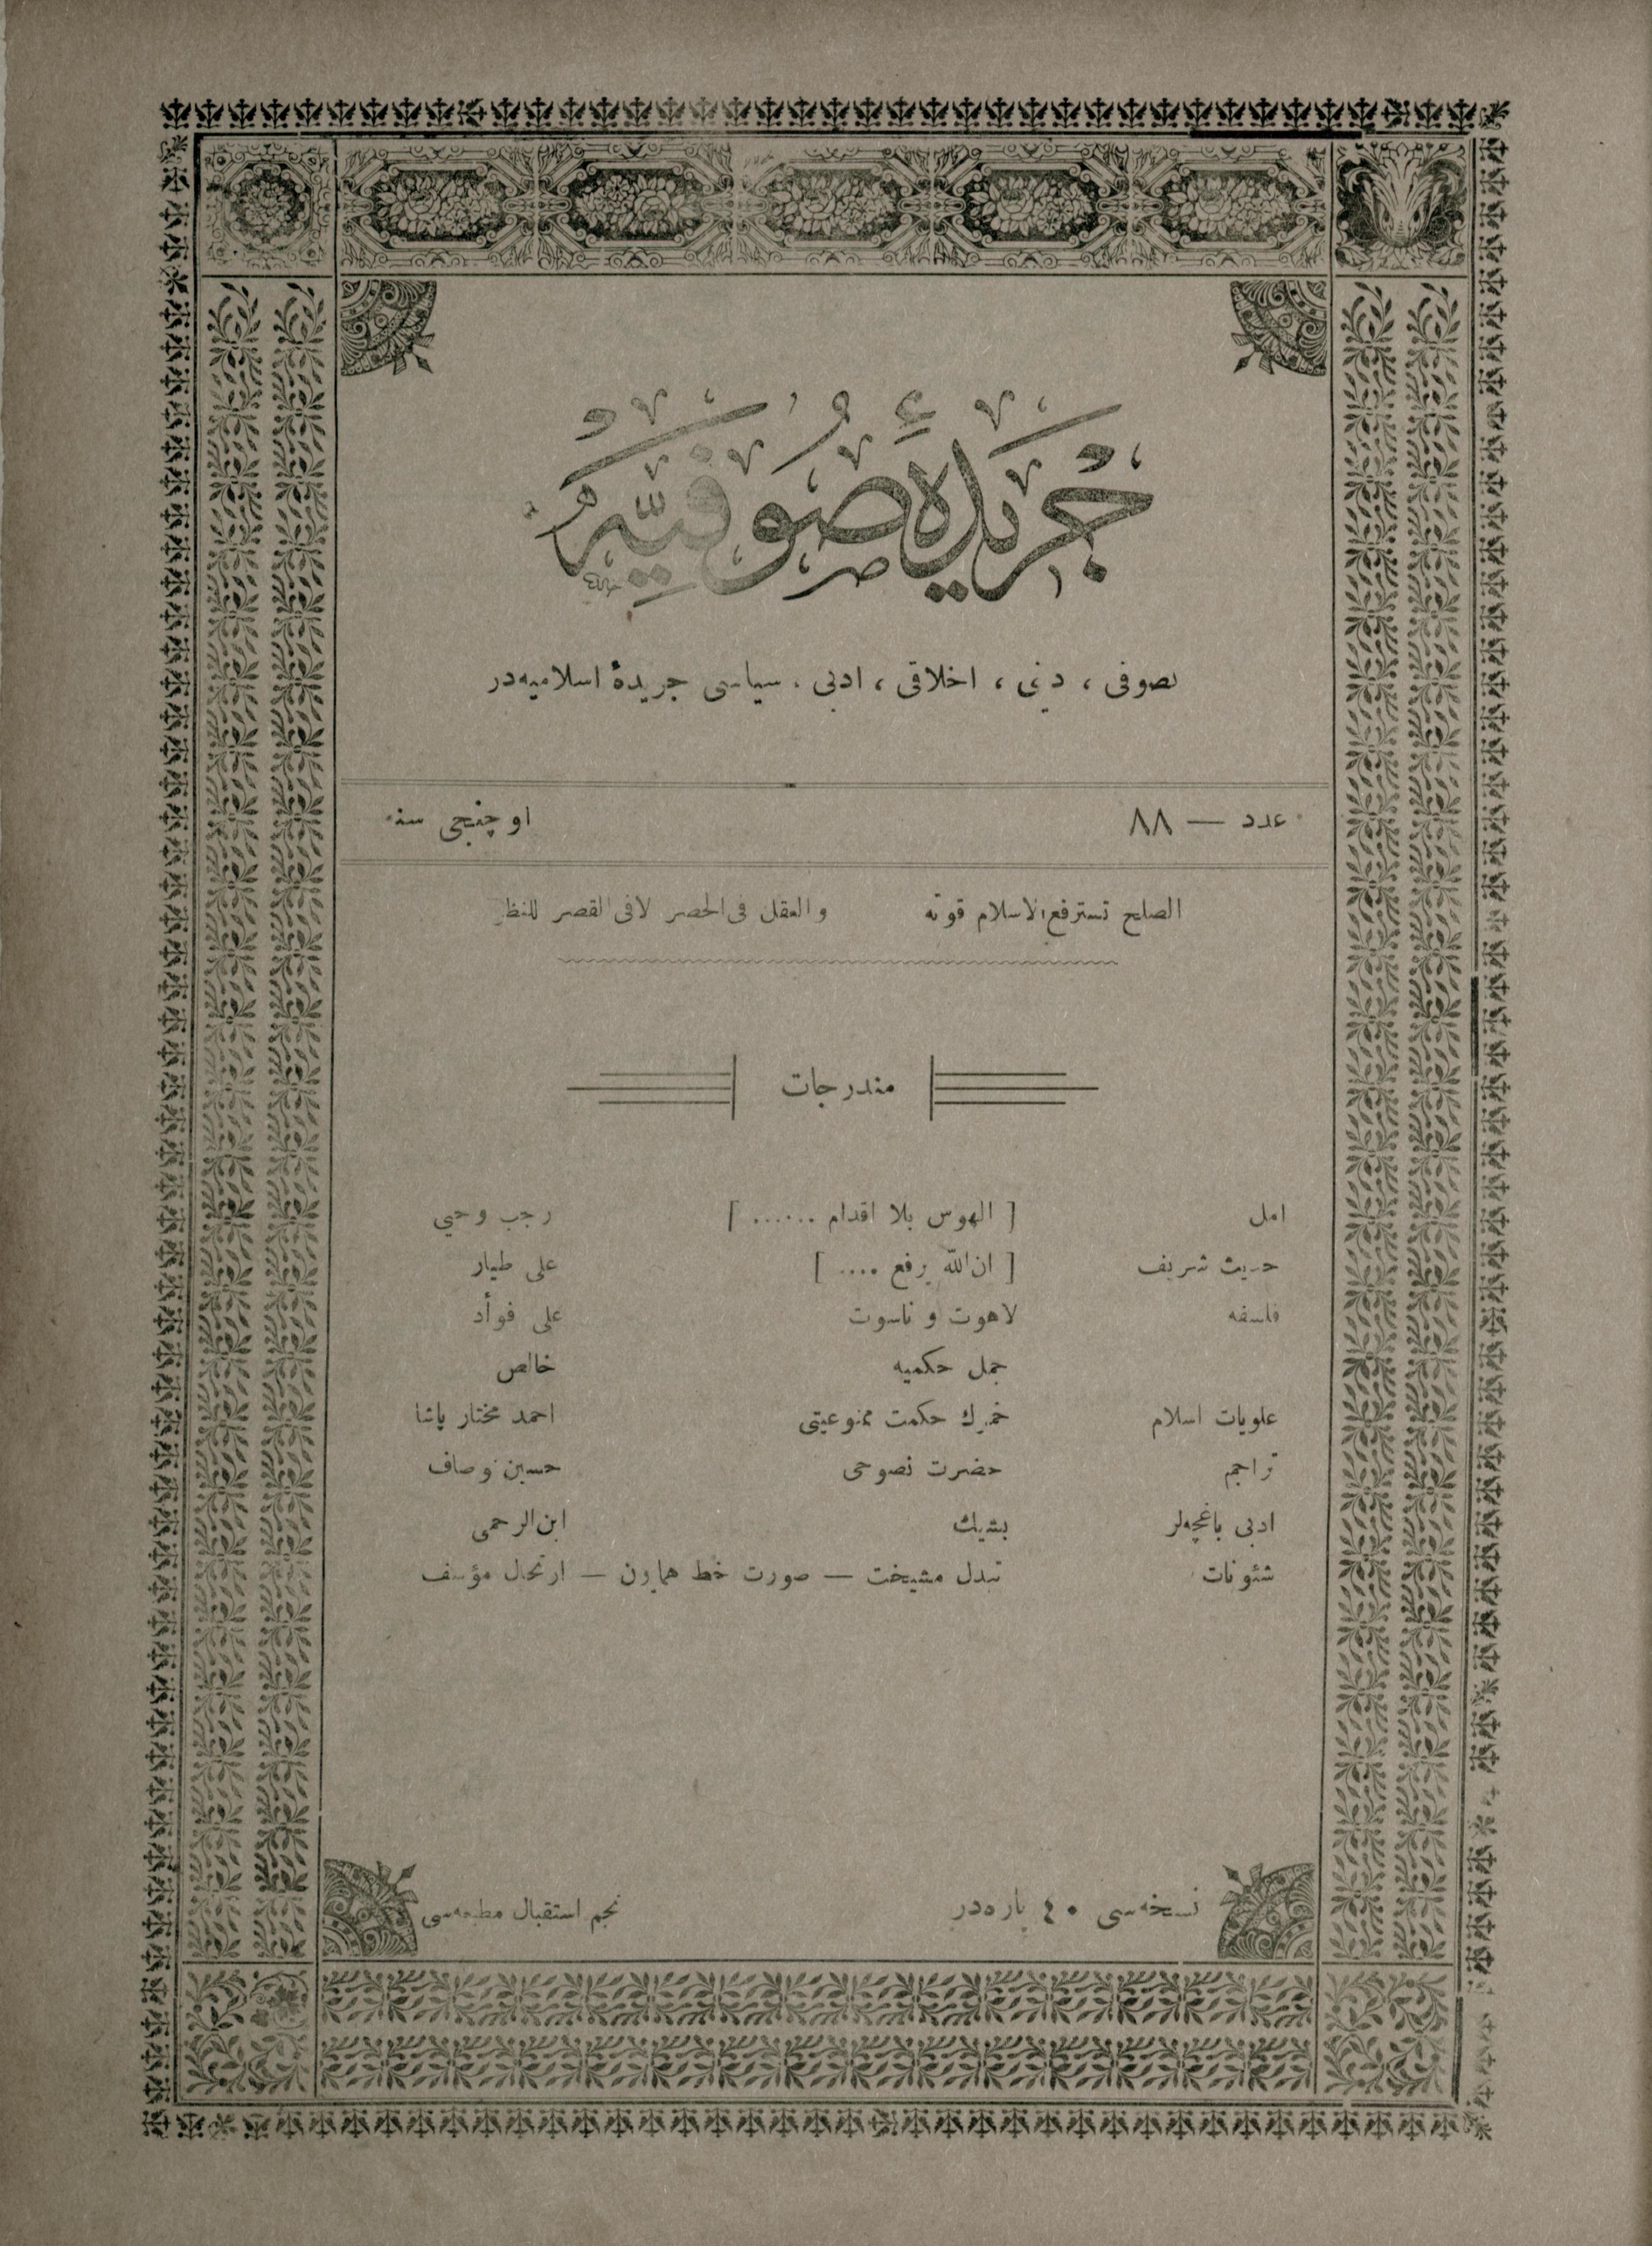 جريدهٔ صوفيه
تصوفی ، دینی ، اخلاقی ، ادبی ، سیاسی جریدهٔ اسلامیه‌در
عدد — ٨٨ اوچنجی سنه
الصلح تسترفع الاسلام قوته والعقل فی الحصر لافی القصر للنظر
مندرجات
امل [ الهوس بلا اقدام ...... ] رجب وحیی
حدیث شریف [ ان‌الله یرفع .... ] علی طیار
فلسفه لاهوت و ناسوت علی فوأد
جمل حکمیه خالص
علویات اسلام خمرك حکمت ممنوعیتی احمد مختار پاشا
تراجم حضرت نصوحی حسین وصاف
ادبی باغچه‌لر بشیك ابن‌الرحمی
شئونات تبدل مشیخت — صورت خط همایون — ارتحال مؤسف
نسخه‌سی ٤٠ پاره‌در نجم استقبال مطبعه‌سی